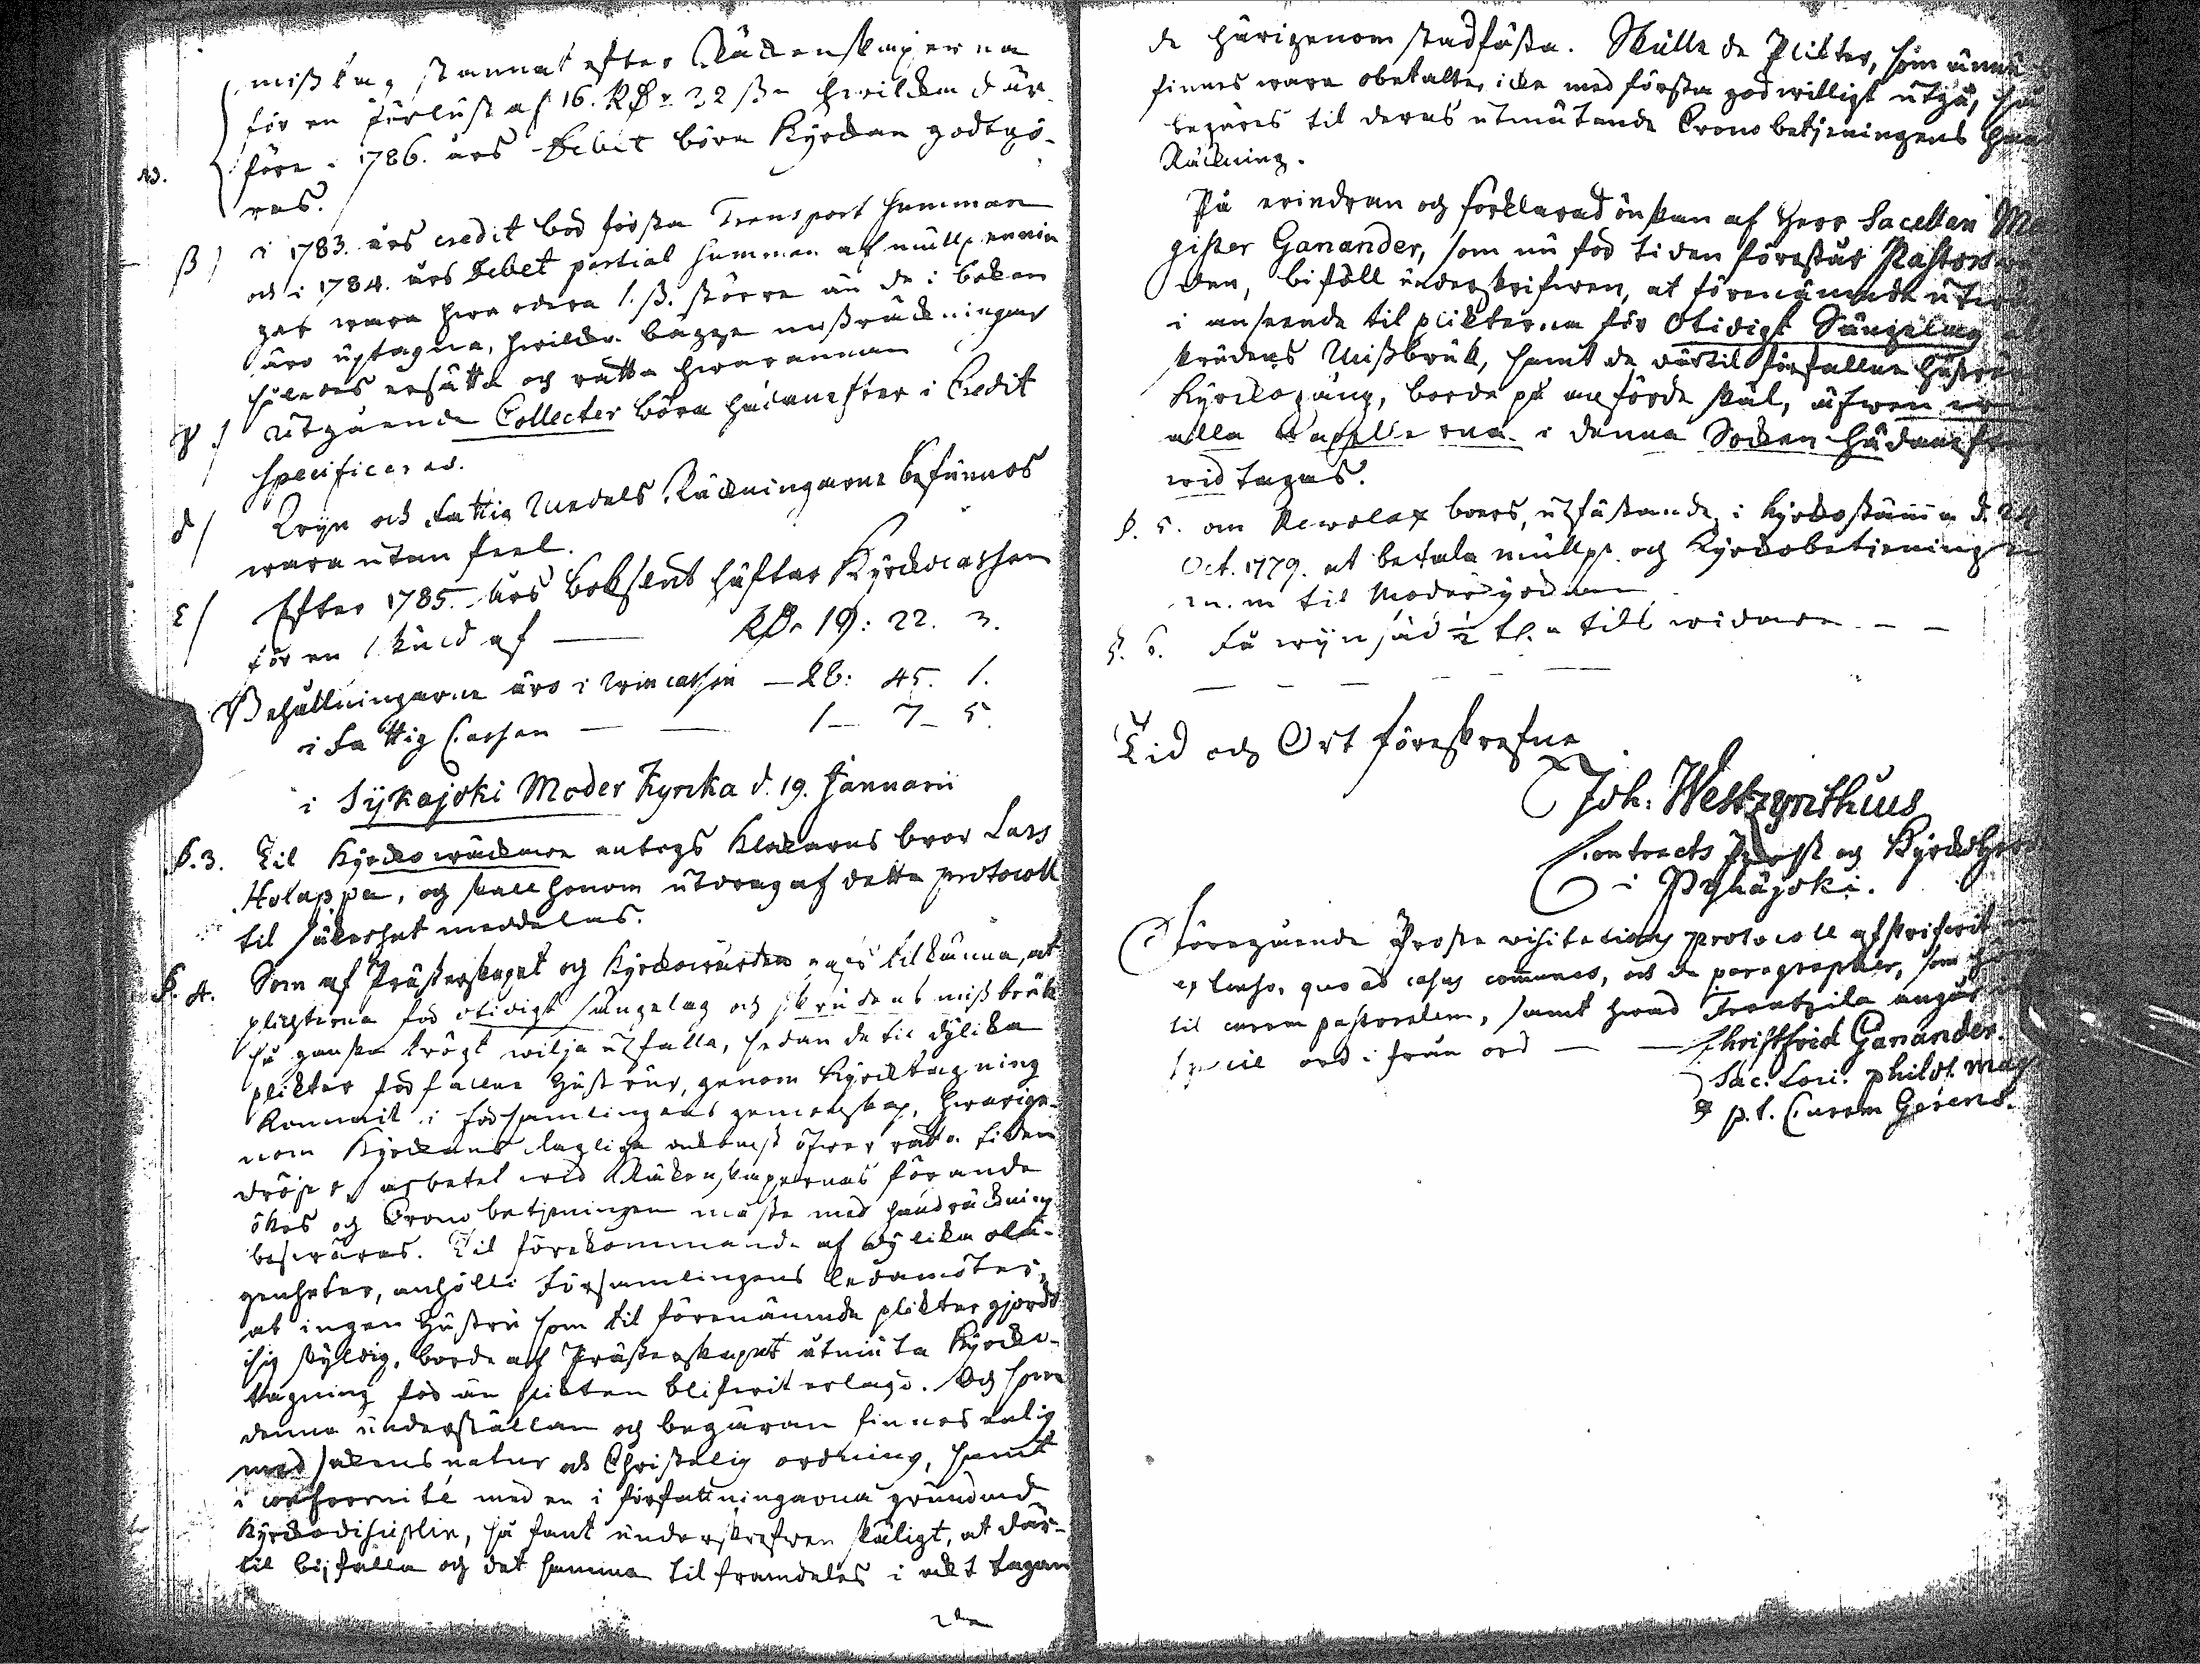 misstag stannat efter Räckenskaperna
för en förlust af 16. Rd. 32 ss. hvilken där
före i 1786. års Debet böra Kyrckan godtgö-
NB.
ras.
β) i 1783. års credit bör första Transport summan
och i 1784. års Debet partial summan af mullpennin
gar wara hwardera 1. ss. större än de i boken
äro uptagna, hvilka bägge missräckningar
således ersätta och rätta hwarannan
γ) utgående Collecter böra hädanefter i Credit
specificeras.
δ) Qvyn och Fattig Medels Räckningarne befunnos
wara utan feel.
ε) Efter 1785. års bokslut häftar Kyrckocassan
för en skuld af — Rd. 19: 22. 3.
Behållningarne äro i Qvincassan — 26: 45. 1.
i Fattig Cassan — — 1 — 7 — 5.
i Sykajoki Moder Kyrcka d. 19. Januarii
§. 3. Til Kyrckowäckare antogs Klockarens bror Lars
Holappa, och skall honom utdrag af detta protocoll
til säkerhet meddelas.
§. 4. Som af Prästerskapet och Kyrckowärden gafs tilkänna, at
plickterna för otidigt sängelag och skrudens missbruk
så ganska trögt wilja utfalla, sedan de til dylika
plikter förfallne Hustrur, genom Kyrcktagning
kommit i församlingens gemenskap, hwarige-
nom Kyrckans laglige inkomst öfwer rätta tiden
dröjer, arbetet wid Räkenskapernas förande
ökes och Cronobetjeningen måste med handräckning
beswäras. Til förekommande af dylika olä-
genheter, anhölle Församlingens ledamöter,
at ingen Hustru som til förenämnde plikter gjordt
sig skyldig, borde af Prästerskapet åtniuta Kyrcko-
tagning för än plikten blifwit erlagd. Och som
denna underställan och begäran finnes enlig
med sakens natur och Christelig ordning, samt
i conformité med en i författningarna grundad
Kyrckodisciplin, så fant underskrefwen skäligt, at där-
til bifalla och det samma til framdeles i ackt tagan
de härigenom stadfästa. Skulle de Plikter, som ännu
finnes wara obetalte, icke med första godwilligt utgå, så
begäres til deras utmätande Cronobetjeningens Hand
Räckning.
På erindran och förklarad önskan af Herr Sacellan Ma
gister Ganander, som nu för tiden förestår Pastors
den, biföll underskrifwen, at förenämnde
i anseende til plikterna för otidigt Sängelag
skrudens Missbruk, samt de därtil förfallne Hustrurs
Kyrckogång, borde på anförde skäl, äfwen
alla Capellerna i denna Socken hädanefter
widtagas.
§. 5. om Rewolax boers, utfästande i Kyrckostämma d. 24
Oct. 1779. at betala mullp. och Kyrckobetjening
m. m til Moderkyrckan
§. 6. Få wijnsäd ½ tl. a tils widare — —
— — — — — —
Tid och Ort föreskrefne
Joh: Westzynthius
Contracts Prost och Kyrckoherde
i Pyhäjoki.
Föregående Prosta visitations protocoll afskrifwit
ex lenso, quoad casus communes, och de paragrapher, som
til curam pastoralem, samt hwad Frantzila angår
special ord ifrån ord — — Christfrid Ganander.
Sac. Loci. philos. mag
& p.t. Curam Gerens.